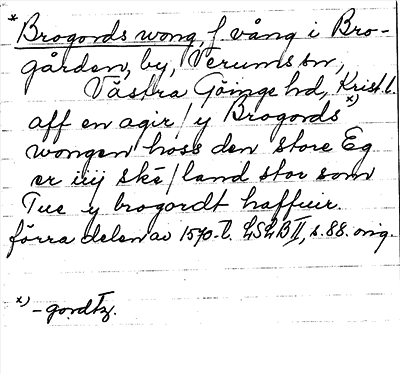 * Brogords wong f. vång i Bro-
gården, by, Verums sn,
Västra Göinge hd, Krist. l.
aff en agir / y Brogords x)
wongen hoss den store Eg
er iiij ske / land stor som
Tue y brogordt haffuir.
förra delen av 1570-t. LSLB II, s. 88. orig.
x) -gordtz.